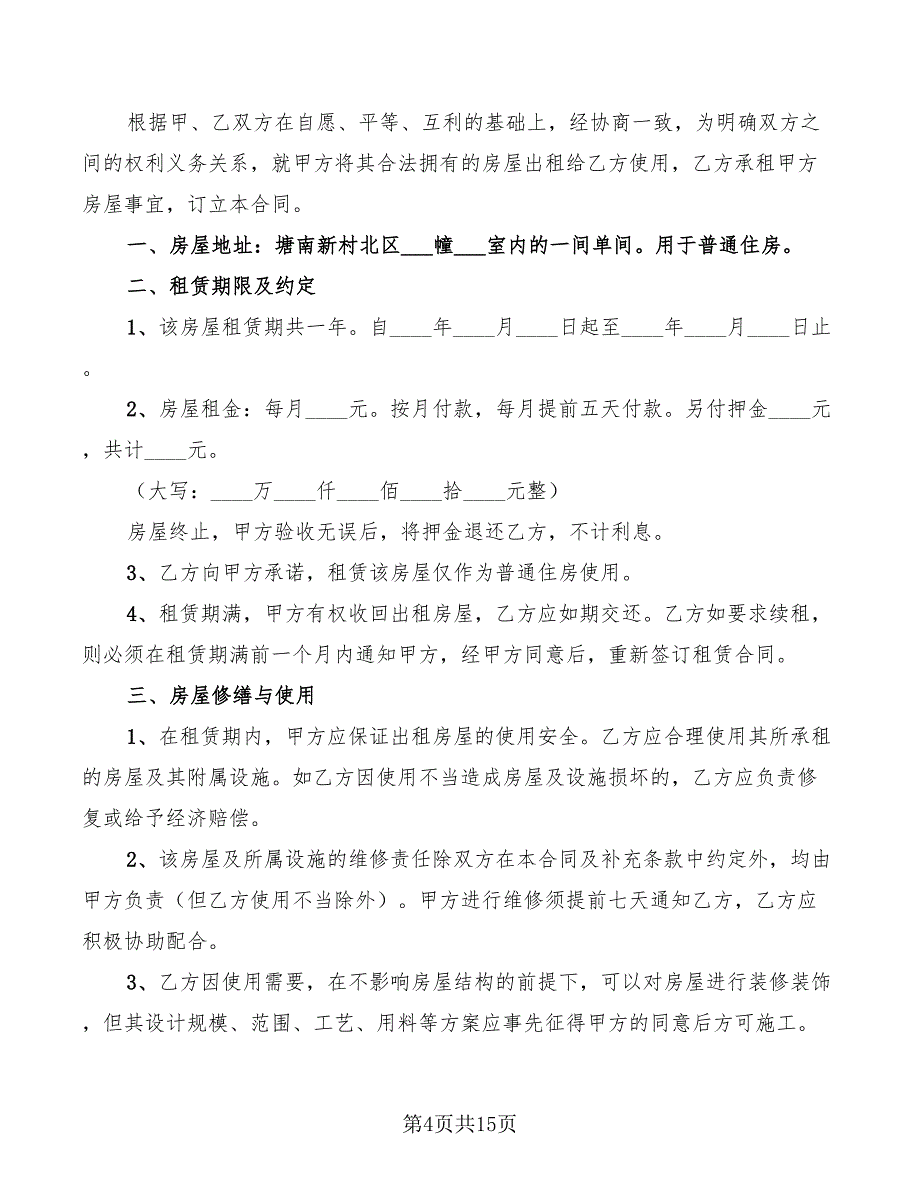 根据甲、乙双方在自愿、平等、互利的基础上，经协商一致，为明确双方之
间的权利义务关系，就甲方将其合法拥有的房屋出租给乙方使用，乙方承租甲方
房屋事宜，订立本合同。
一、房屋地址：塘南新村北区___幢___室内的一间单间。用于普通住房。
二、租赁期限及约定
1、该房屋租赁期共一年。自____年____月____日起至____年____月____日止
。
2、房屋租金：每月____元。按月付款，每月提前五天付款。另付押金____元
，共计____元。
（大写：____万____仟____佰____拾____元整）
房屋终止，甲方验收无误后，将押金退还乙方，不计利息。
3、乙方向甲方承诺，租赁该房屋仅作为普通住房使用。
4、租赁期满，甲方有权收回出租房屋，乙方应如期交还。乙方如要求续租，
则必须在租赁期满前一个月内通知甲方，经甲方同意后，重新签订租赁合同。
三、房屋修缮与使用
1、在租赁期内，甲方应保证出租房屋的使用安全。乙方应合理使用其所承租
的房屋及其附属设施。如乙方因使用不当造成房屋及设施损坏的，乙方应负责修
复或给予经济赔偿。
2、该房屋及所属设施的维修责任除双方在本合同及补充条款中约定外，均由
甲方负责（但乙方使用不当除外）。甲方进行维修须提前七天通知乙方，乙方应
积极协助配合。
3、乙方因使用需要，在不影响房屋结构的前提下，可以对房屋进行装修装饰
，但其设计规模、范围、工艺、用料等方案应事先征得甲方的同意后方可施工。
第4页共15页